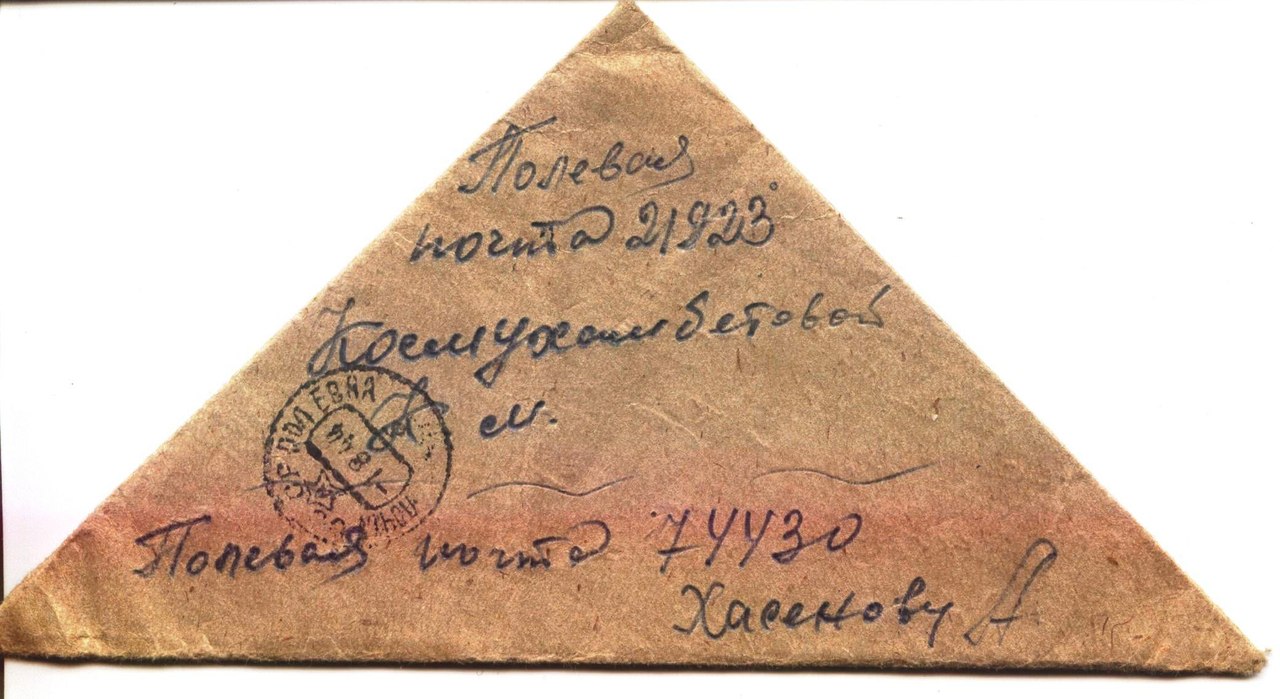 Полевая
почта 21923
Космухамбетовой
А м.
СССР ПОЛЕВАЯ ПОЧТА
1 8 44
Полевая почта 74430
Хасенову А